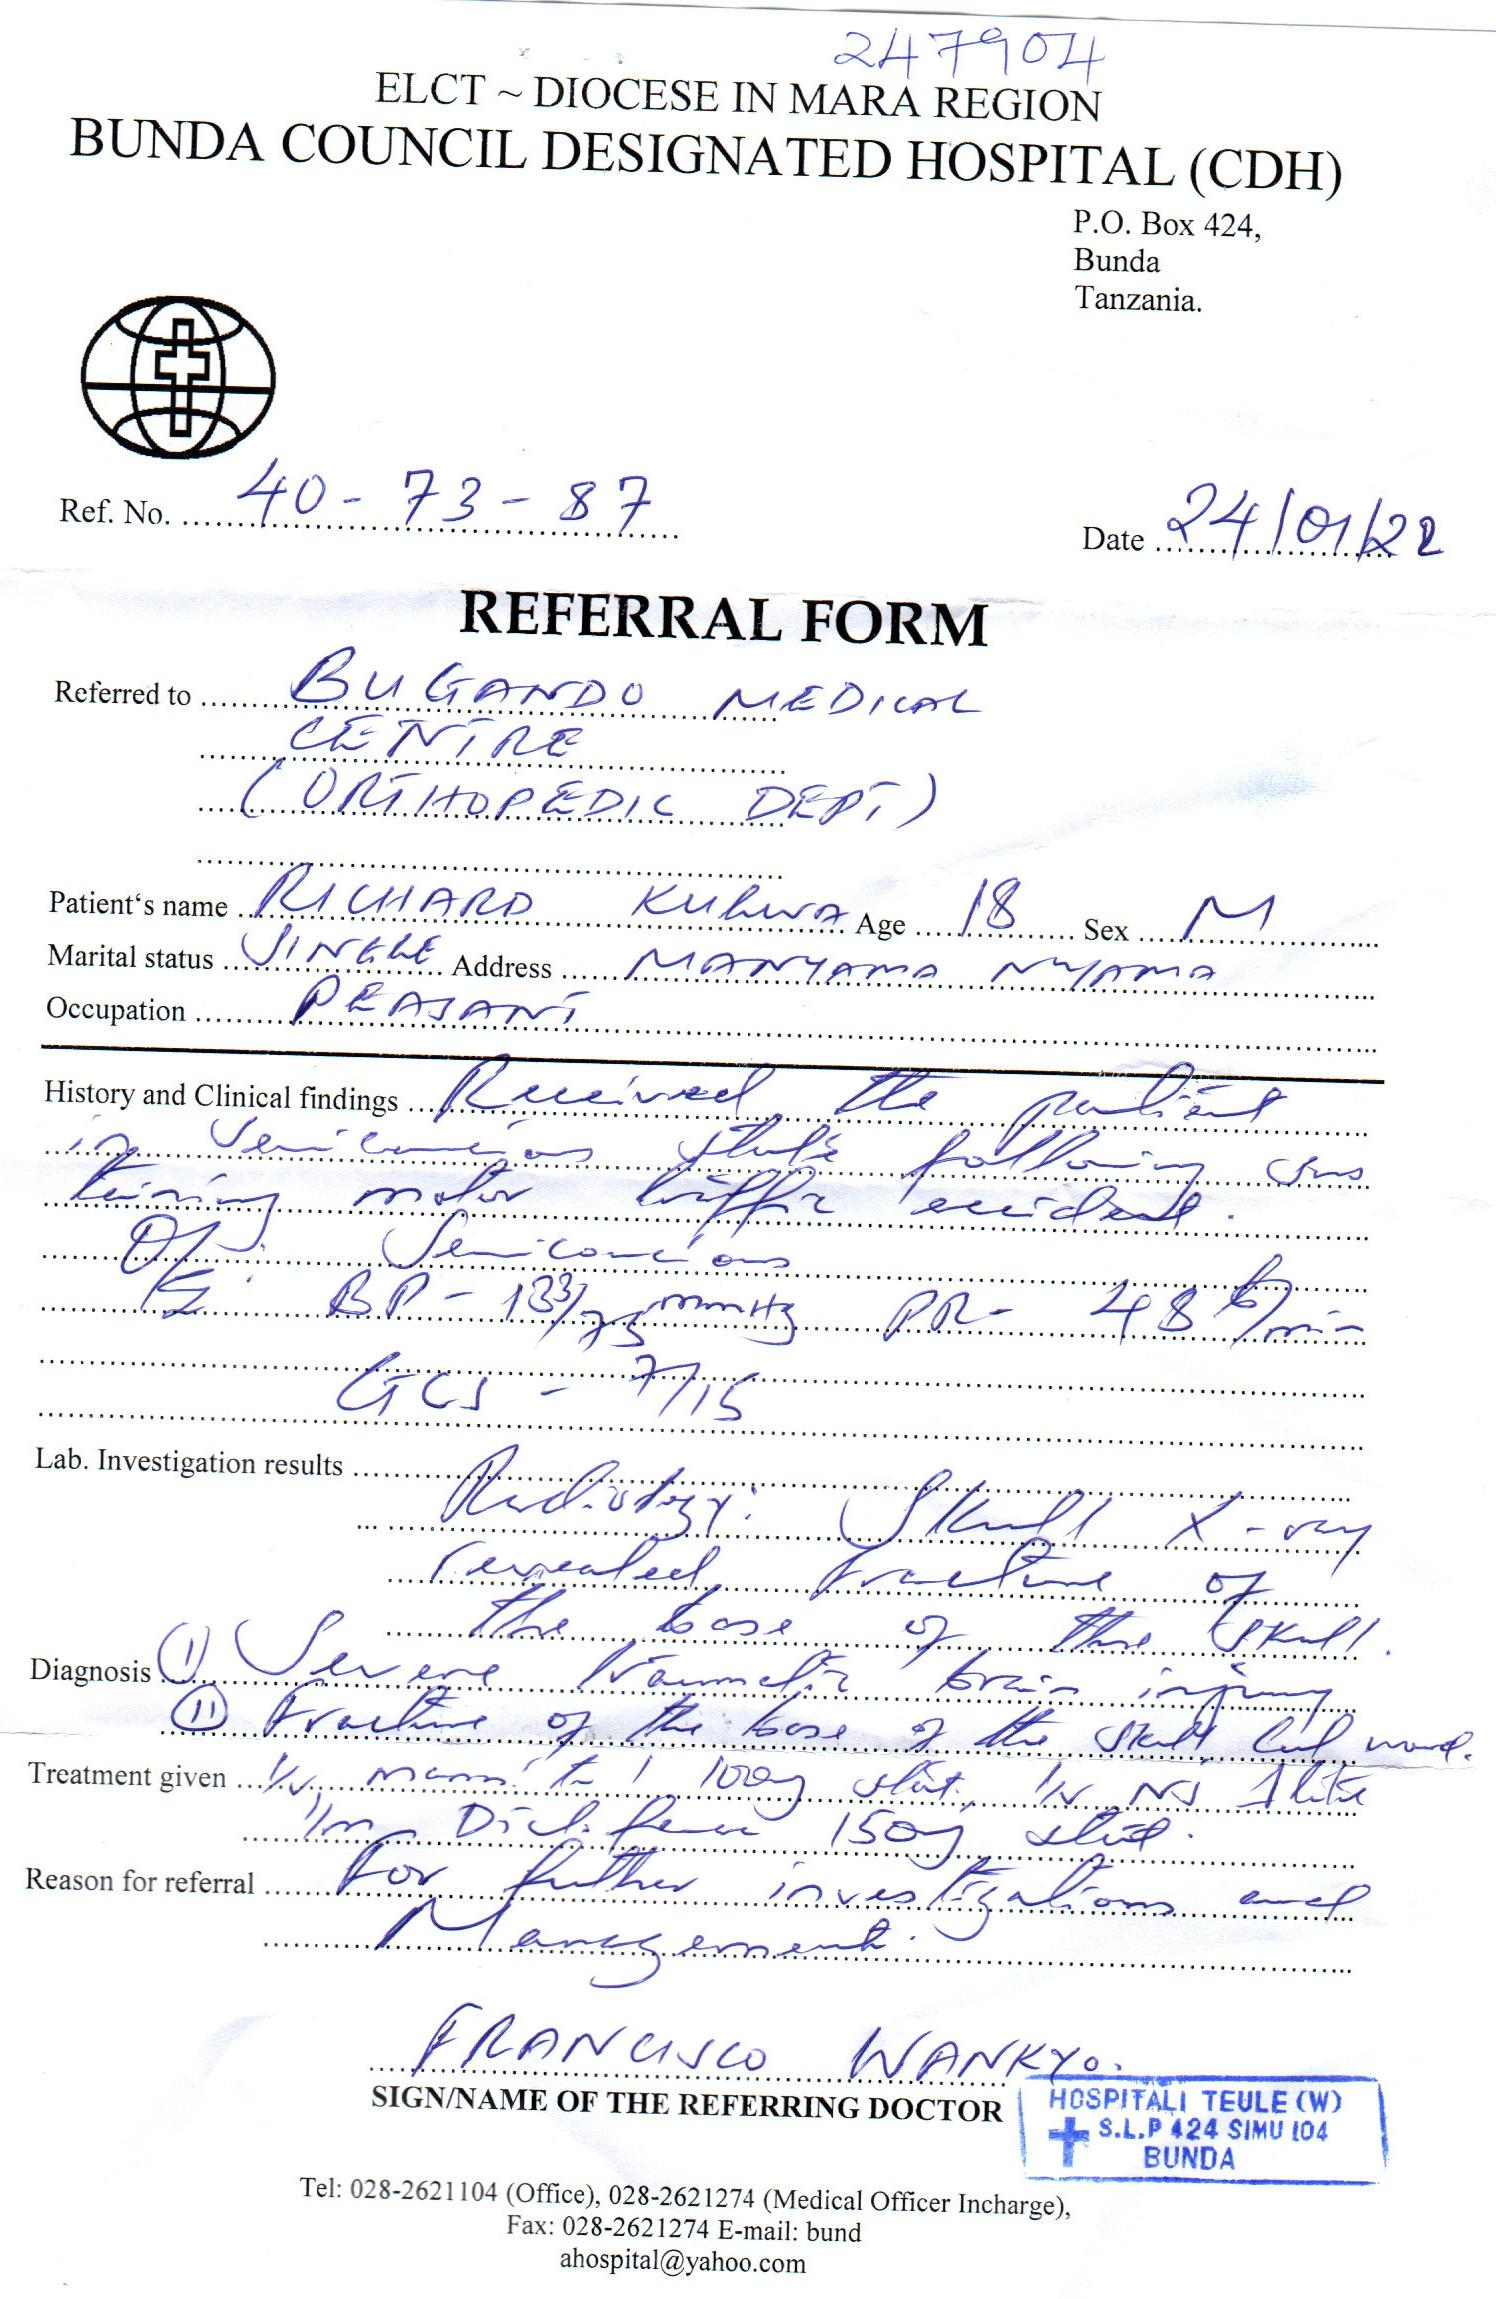 247904
ELCT ~ DIOCESE IN MARA REGION
BUNDA COUNCIL DESIGNATED HOSPITAL (CDH)
P.O. Box 424,
Bunda
Tanzania.
Ref. No. 40-73-87
Date 24/01/22
REFERRAL FORM
Referred to BUGANDO MEDICAL
CENTRE
(ORTHOPEDIC DEPT)
Patient's name RICHARD KULWA Age 18 Sex M
Marital status SINGLE Address MANYAMA NYAMA
Occupation PEASANT
History and Clinical findings Received the patient
in semiconcious state following sus
taining motor traffic accident.
O/E: Semiconcious
BP - 133/73 mmHg PR - 48 b/min
GCS - 7/15
Lab. Investigation results
Radiology: Skull X-ray
revealed fracture of
the base of the skull.
Diagnosis (I) Severe traumatic brain injury
(II) Fracture of the base of the skull
Treatment given I/V mannitol 100g stat, I/V NS 1 litre
I/m Diclofenac 150g stat.
Reason for referral For further investigations and
Management.
FRANCISCO WANKYO.
SIGN/NAME OF THE REFERRING DOCTOR
HOSPITALI TEULE (W)
S.L.P 424 SIMU 104
BUNDA
Tel: 028-2621104 (Office), 028-2621274 (Medical Officer Incharge),
Fax: 028-2621274 E-mail: bund
ahospital@yahoo.com